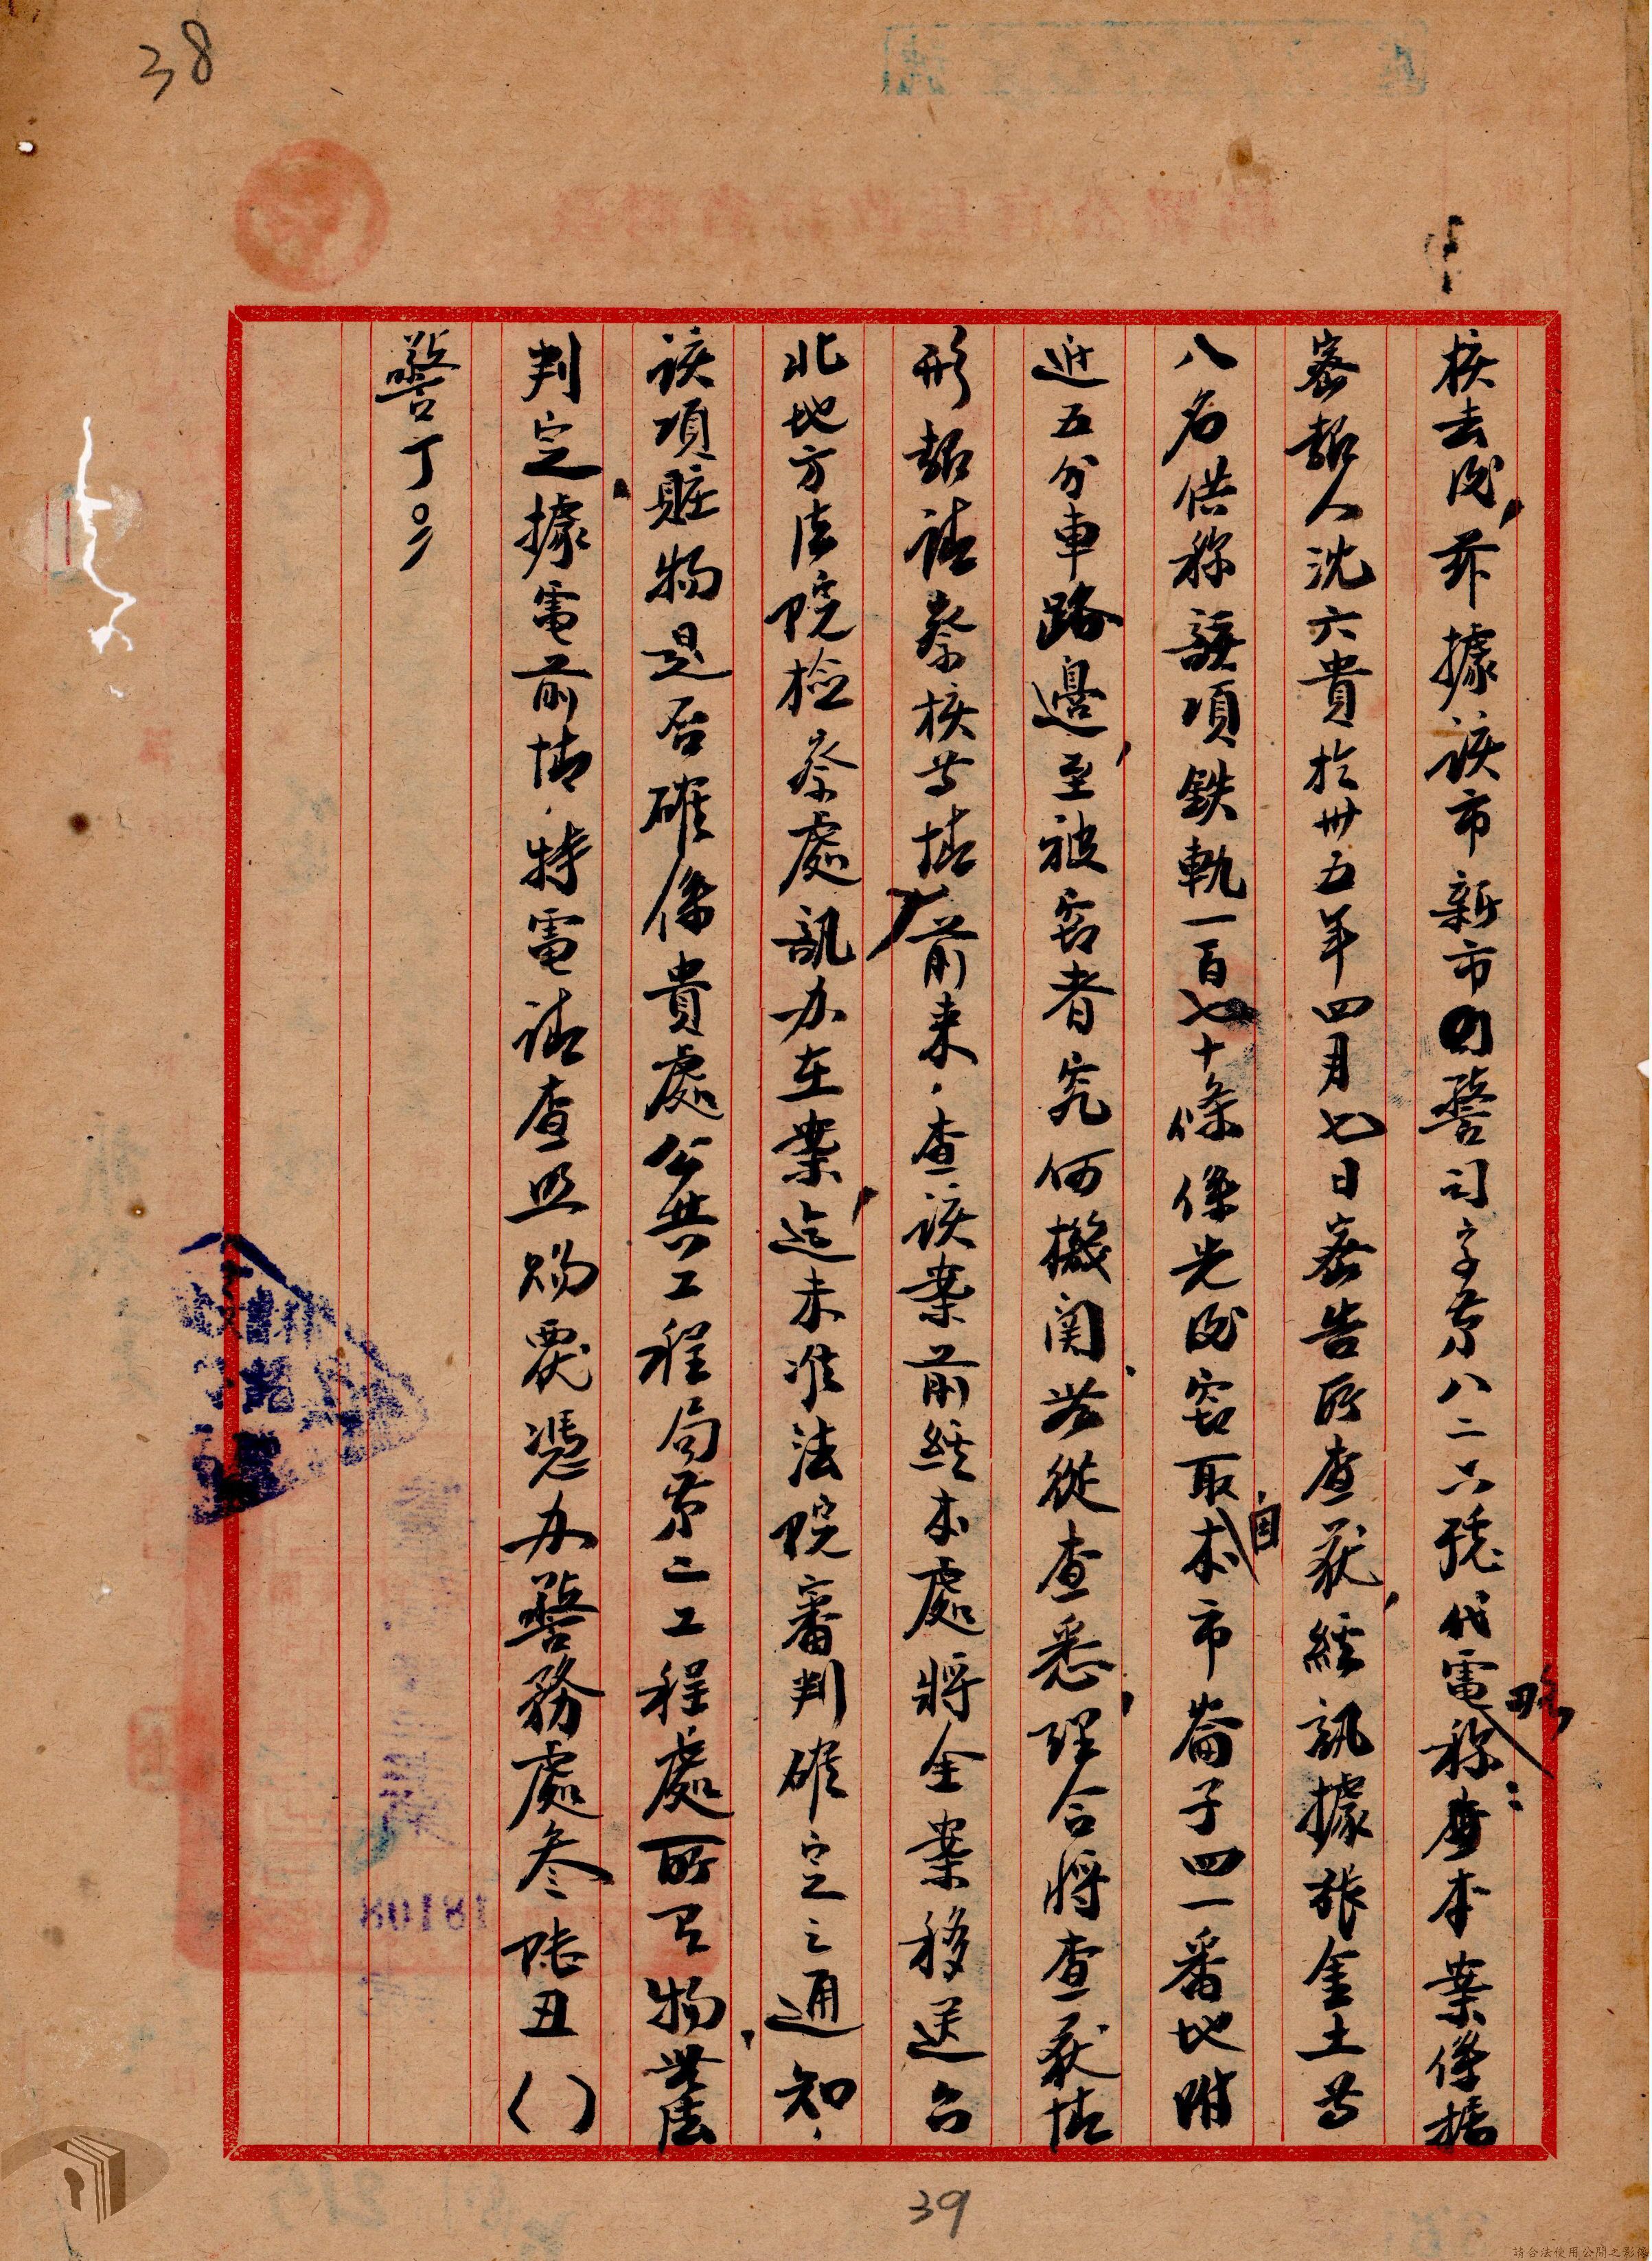 38
核去後，茲據該市新市四警司字第八二六號代電略稱：查本案係據
密報人沈六貴於卅五年四月七日密告所查获，經訊據張金土等
八名供称該項鉄軌一百七十條係先後窃取自本市崙子四一番地附
近五分車路邊，至被窃者究何機関、無從查悉，理合將查获情
形報請察核等情前来，查該案前經本處將全案移送台
北地方法院檢察處訊办在案，迄未准法院審判確定之通知，
該項賍物是否確係貴處公共工程局第二工程處所有物，無法
判定、據電前情，特電請查照賜覆憑办警務處叁陆丑（）
警丁
39
請合法使用公開之影像